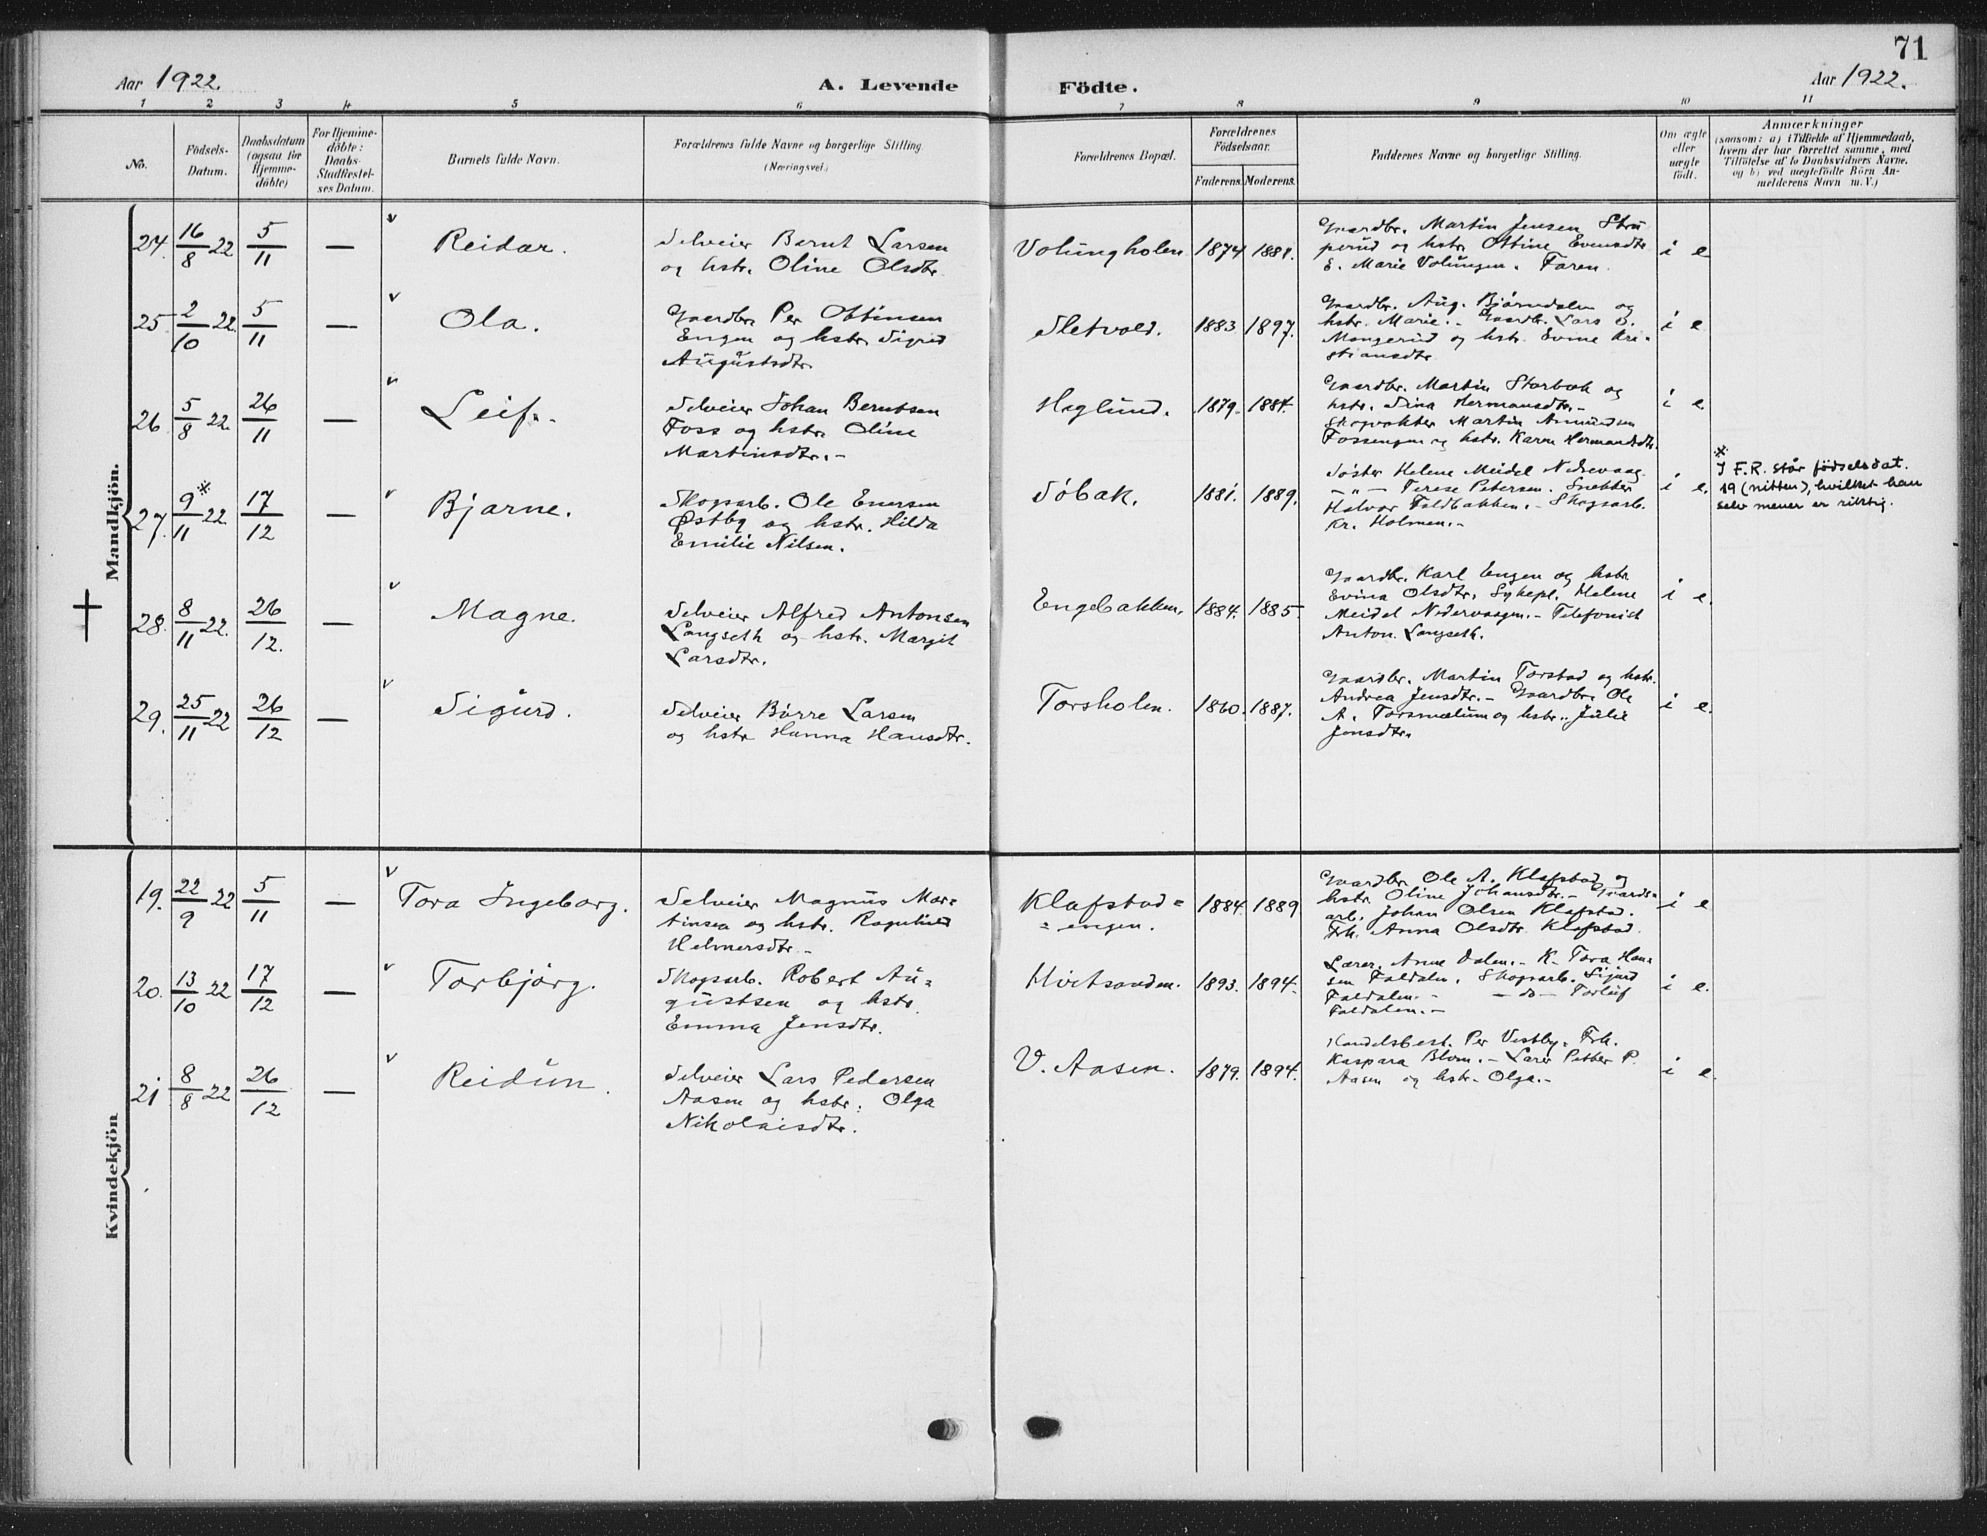 71
Aar 1922.
A. Levende
Födte.
Aar 1922.
1 2 3 4 5 6 7 8 9 10 11
No.
Födsels-
Datum.
Daabsdatum
(ogsaa for
Hjemme-
döbte)
For Hjemme-
döbte:
Daabs-
Stadfæstel-
ses Datum.
Barnets fulde Navn.
Forældrenes fulde Navne og borgerlige Stilling
(Næringsvei.)
Forældrenes Bopæl.
Forældrenes
Födselsaar.
Faderens. Moderens.
Faddernes Navne og borgerlige Stilling.
Om ægte
eller
uægte
födt.
Anmærkninger
(saasom: a) i Tilfælde af Hjemmedaab,
hvem der har forrettet samme, med
Tilföielse af to Daabsvidners Navne,
og b) ved uægtefödte Börn An-
melderens Navn m. V.)
Mandkjön.
24. 16/8 22 5/11 — Reidar.
Selveier Bernt Larsen
og hstr. Oline Olsdtr.
Volungholen 1874 1881.
Gaardbr. Martin Jensen Stru
perud og hstr. Ottine Evensdtr.
E. Marie Volungen. Faren.
i e
25. 2/10 22. 5/11 — Ola.
Gaardbr. Per Ottinsen
Engen og hstr. Sigrid
Augustsdtr.
Sletvold. 1883 1897.
Gaardbr. Aug. Bjørnedalen og
hstr. Marie. - Gaardbr. Lars O.
Mangerud og hstr. Evine Kri-
stiansdtr.
i e
26. 5/8 22. 26/11 — Leif.
Selveier Johan Berntsen
Foss og hstr. Oline
Martinsdtr. -
Haglund. 1879. 1884.
Gaardbr. Martin Storbæk og
hstr. Lina Hermansdtr. -
Skogvokter Martin Amundsen
Fossengen og hstr. Karen Hermansdtr.
i e.
27. 9*/11 22 17/12 — Bjarne.
Skogsarb. Ole Enersen
Østby og hstr. Hilda
Emilie Nilsen.
Söbak. 1881. 1889.
Söster Helene Meidel Nedrevaag
— " — Terese Petersen. Snekker
Halvor Foldbakken. - Skogsarb.
Kr. Holmen. -
i e.
*
I F.R. står födselsdat.
19 (nitten), hvilket han
selv mener er riktig.
28. 8/11 22. 26/12. — Magne.
Selveier Alfred Antonsen
Langseth og hstr. Margit
Larsdtr.
Engebakken. 1884. 1885.
Gaardbr. Karl Engen og hstr.
Evina Olsdtr. Sykepl. Helene
Meidel Nedervaagen. - Telefonist
Anton Langseth.
i e.
29. 25/11 22 26/12 — Sigurd.
Selveier Børre Larsen
og hstr Hanna Hansdtr.
Torsholen. 1860. 1887.
Gaardbr. Martin Torstad og hstr.
Andrea Jensdtr. - Gaardbr. Ole
A. Torsmælum og hstr. Julie
Jensdtr.
i e.
Kvindekjön
19. 22/9 22 5/11 — Tora Ingeborg.
Selveier Magnus Mar-
tinsen og hstr. Ragnhild
Helmersdtr. -
Klafstad=
=engen. 1884. 1889
Gaardbr. Ole A. Klafstad og
hstr. Oline Johansdtr. - Gaards-
arb. Johan Olsen Klafstad.
Frk. Anna Olsdtr. Klafstad.
i e
20. 13/10 22 17/12 — Torbjörg.
Skogsarb. Robert Au=
gustsen og hstr.
Emma Jensdtr.
Hvitsanden. 1893. 1894.
Lærer. Anne Dalen. - K. Tora Han=
sen Faldalen. Skogsarb. Sigurd
Faldalen. - — do — Torleif
Faldalen. -
i e.
21 8/8 22 26/12 — Reidun.
Selveier Lars Pedersen
Aasen og hstr. Olga
Nikolaisdtr.
V. Aasen. 1879. 1894.
Handelsbest. Per Vestby. Frk.
Kaspara Blom. - Lærer Petter P.
Aasen og hstr. Olga. -
i e.